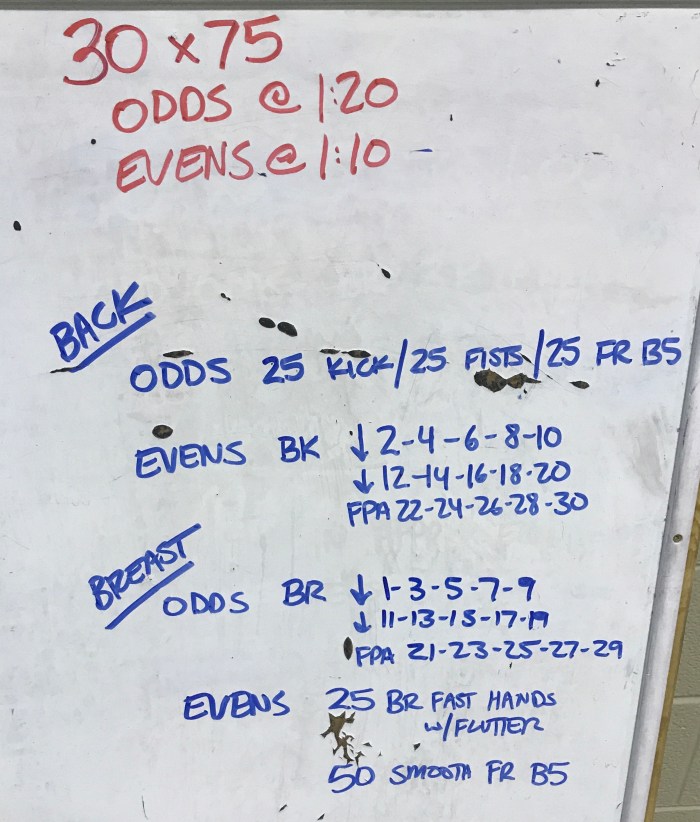 30 x 75
ODDS @ 1:20
EVENS @ 1:10
BACK
ODDS 25 KICK/25 FISTS/25 FR B5
EVENS BK ↓ 2-4-6-8-10
↓ 12-14-16-18-20
FPA 22-24-26-28-30
BREAST
ODDS BR ↓ 1-3-5-7-9
↓ 11-13-15-17-19
FPA 21-23-25-27-29
EVENS 25 BR FAST HANDS
w/FLUTTER
50 SMOOTH FR B5